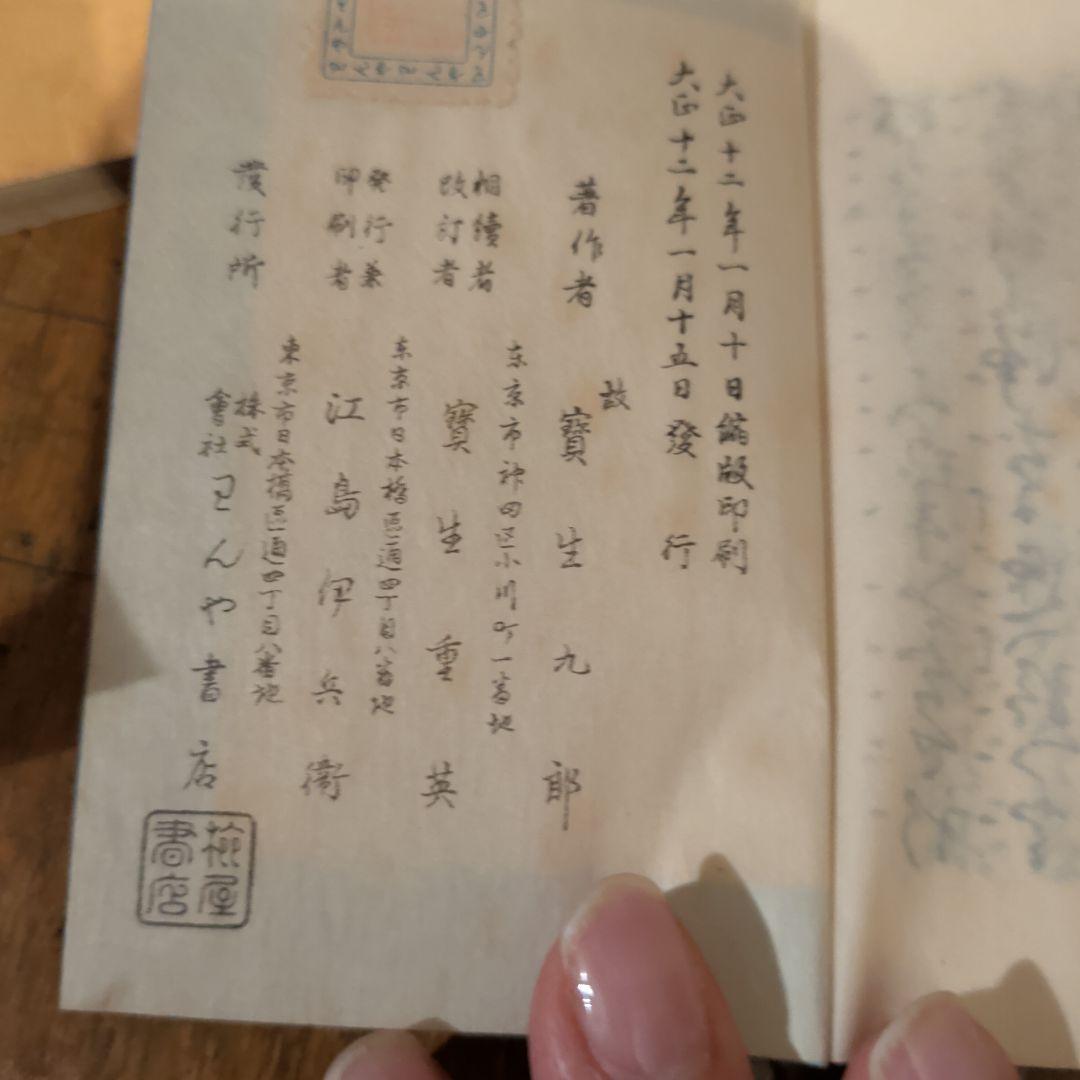 大正十二年一月十日縮版印刷
大正十二年一月十五日發行
著作者 故 寶生九郎
東京市神田区小川町一番地
相續者
改訂者 寶生重英
東京市日本橋區通四丁目八番地
発行兼
印刷者 江島伊兵衛
東京市日本橋區通四丁目八番地
發行所 株式會社 わんや書店
椀屋
書店